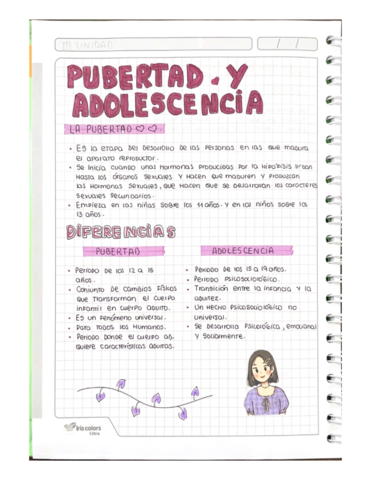 MI UNIDAD
/ /
PUBERTAD Y
ADOLESCENCIA
LA PUBERTAD
• Es la etapa del desarrollo de las personas en las que madura
el aparato reproductor.
• Se inicia cuando unas hormonas producidas por la hipófisis llegan
hasta los órganos sexuales y hacen que maduren y produzcan
las hormonas sexuales, que hacen que se desarrollen los caracteres
sexuales secundarios.
• Empieza en las niñas sobre los 11 años y en los niños sobre los
13 años.
DIFERENCIAS
PUBERTAD
• Periodo de los 12 a 15
años.
• Conjunto de cambios físicos
que transforman el cuerpo
infantil en cuerpo adulto.
• Es un fenómeno universal.
• Para todos los humanos.
• Periodo donde el cuerpo ad-
quiere características adultas.
ADOLESCENCIA
• Periodo de los 15 a 19 años.
• Periodo psicosociológico.
• Transición entre la infancia y la
adultez.
• Un hecho psicosociológico no
universal.
• Se desarrolla psicológica, emocional
y socialmente.
iria colors